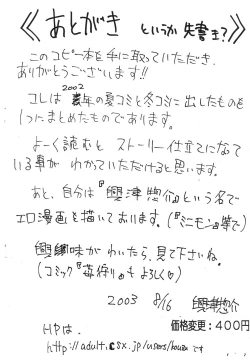 《あとがき というか 失書き?》
このコピー本を手に取っていただき、
ありがとうございます!!
コレは 2002年の夏コミと冬コミに出したものを
1つにまとめたものであります。
よーく読むと ストーリー仕立てになって
いる事が わかっていただけると思います。
あと、自分は『興津惣介』という名で
エロ漫画を描いております。(『ミニモン』等で)
興味がわいたら、見て下さいね。
(コミック『苺狩り』もよろしく♡)
2003 8/16 興津惣介
価格変更：400円
HPは、
http://adult.csx.jp/users/ です